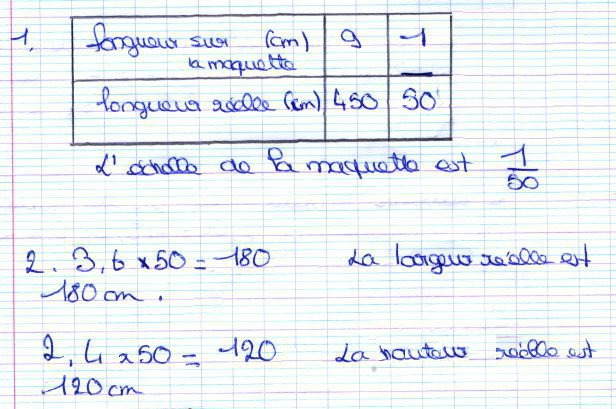 1.
longueur sur (cm) 9 1
la maquette
longueur réelle (cm) 450 50
L'échelle de la maquette est 1/50
2. 3,6 x 50 = 180 La largeur réelle est
180 cm.
2,4 x 50 = 120 La hauteur réelle est
120 cm